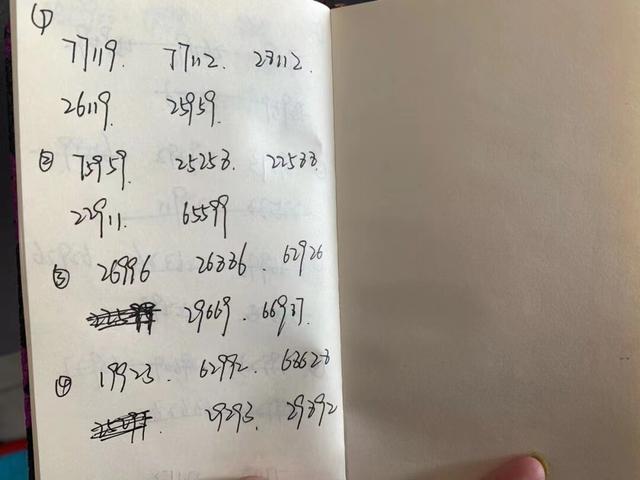 ①
77119. 77112. 28112.
26119. 25959.
② 75959. 25258. 22588.
22911. 65599
③ 26996 26886. 62926
29669. 66937.
④ 19923. 62992. 68628
29293. 29892